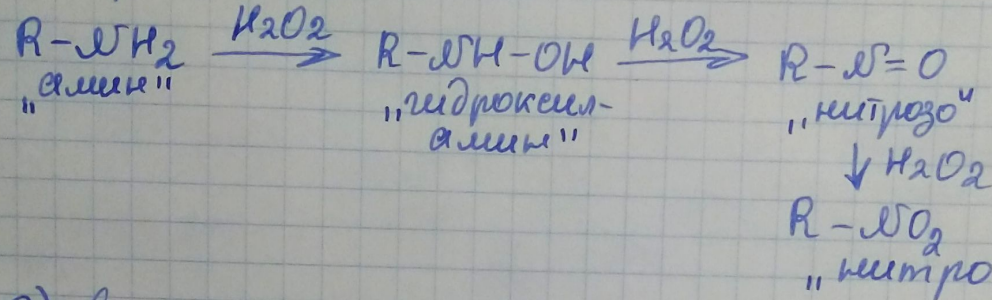 R-NH2 H2O2 R-NH-OH H2O2 R-N=O
„амин" „гидроксил- „нитрозо"
амин" ↓ H2O2
R-NO2
„нитро